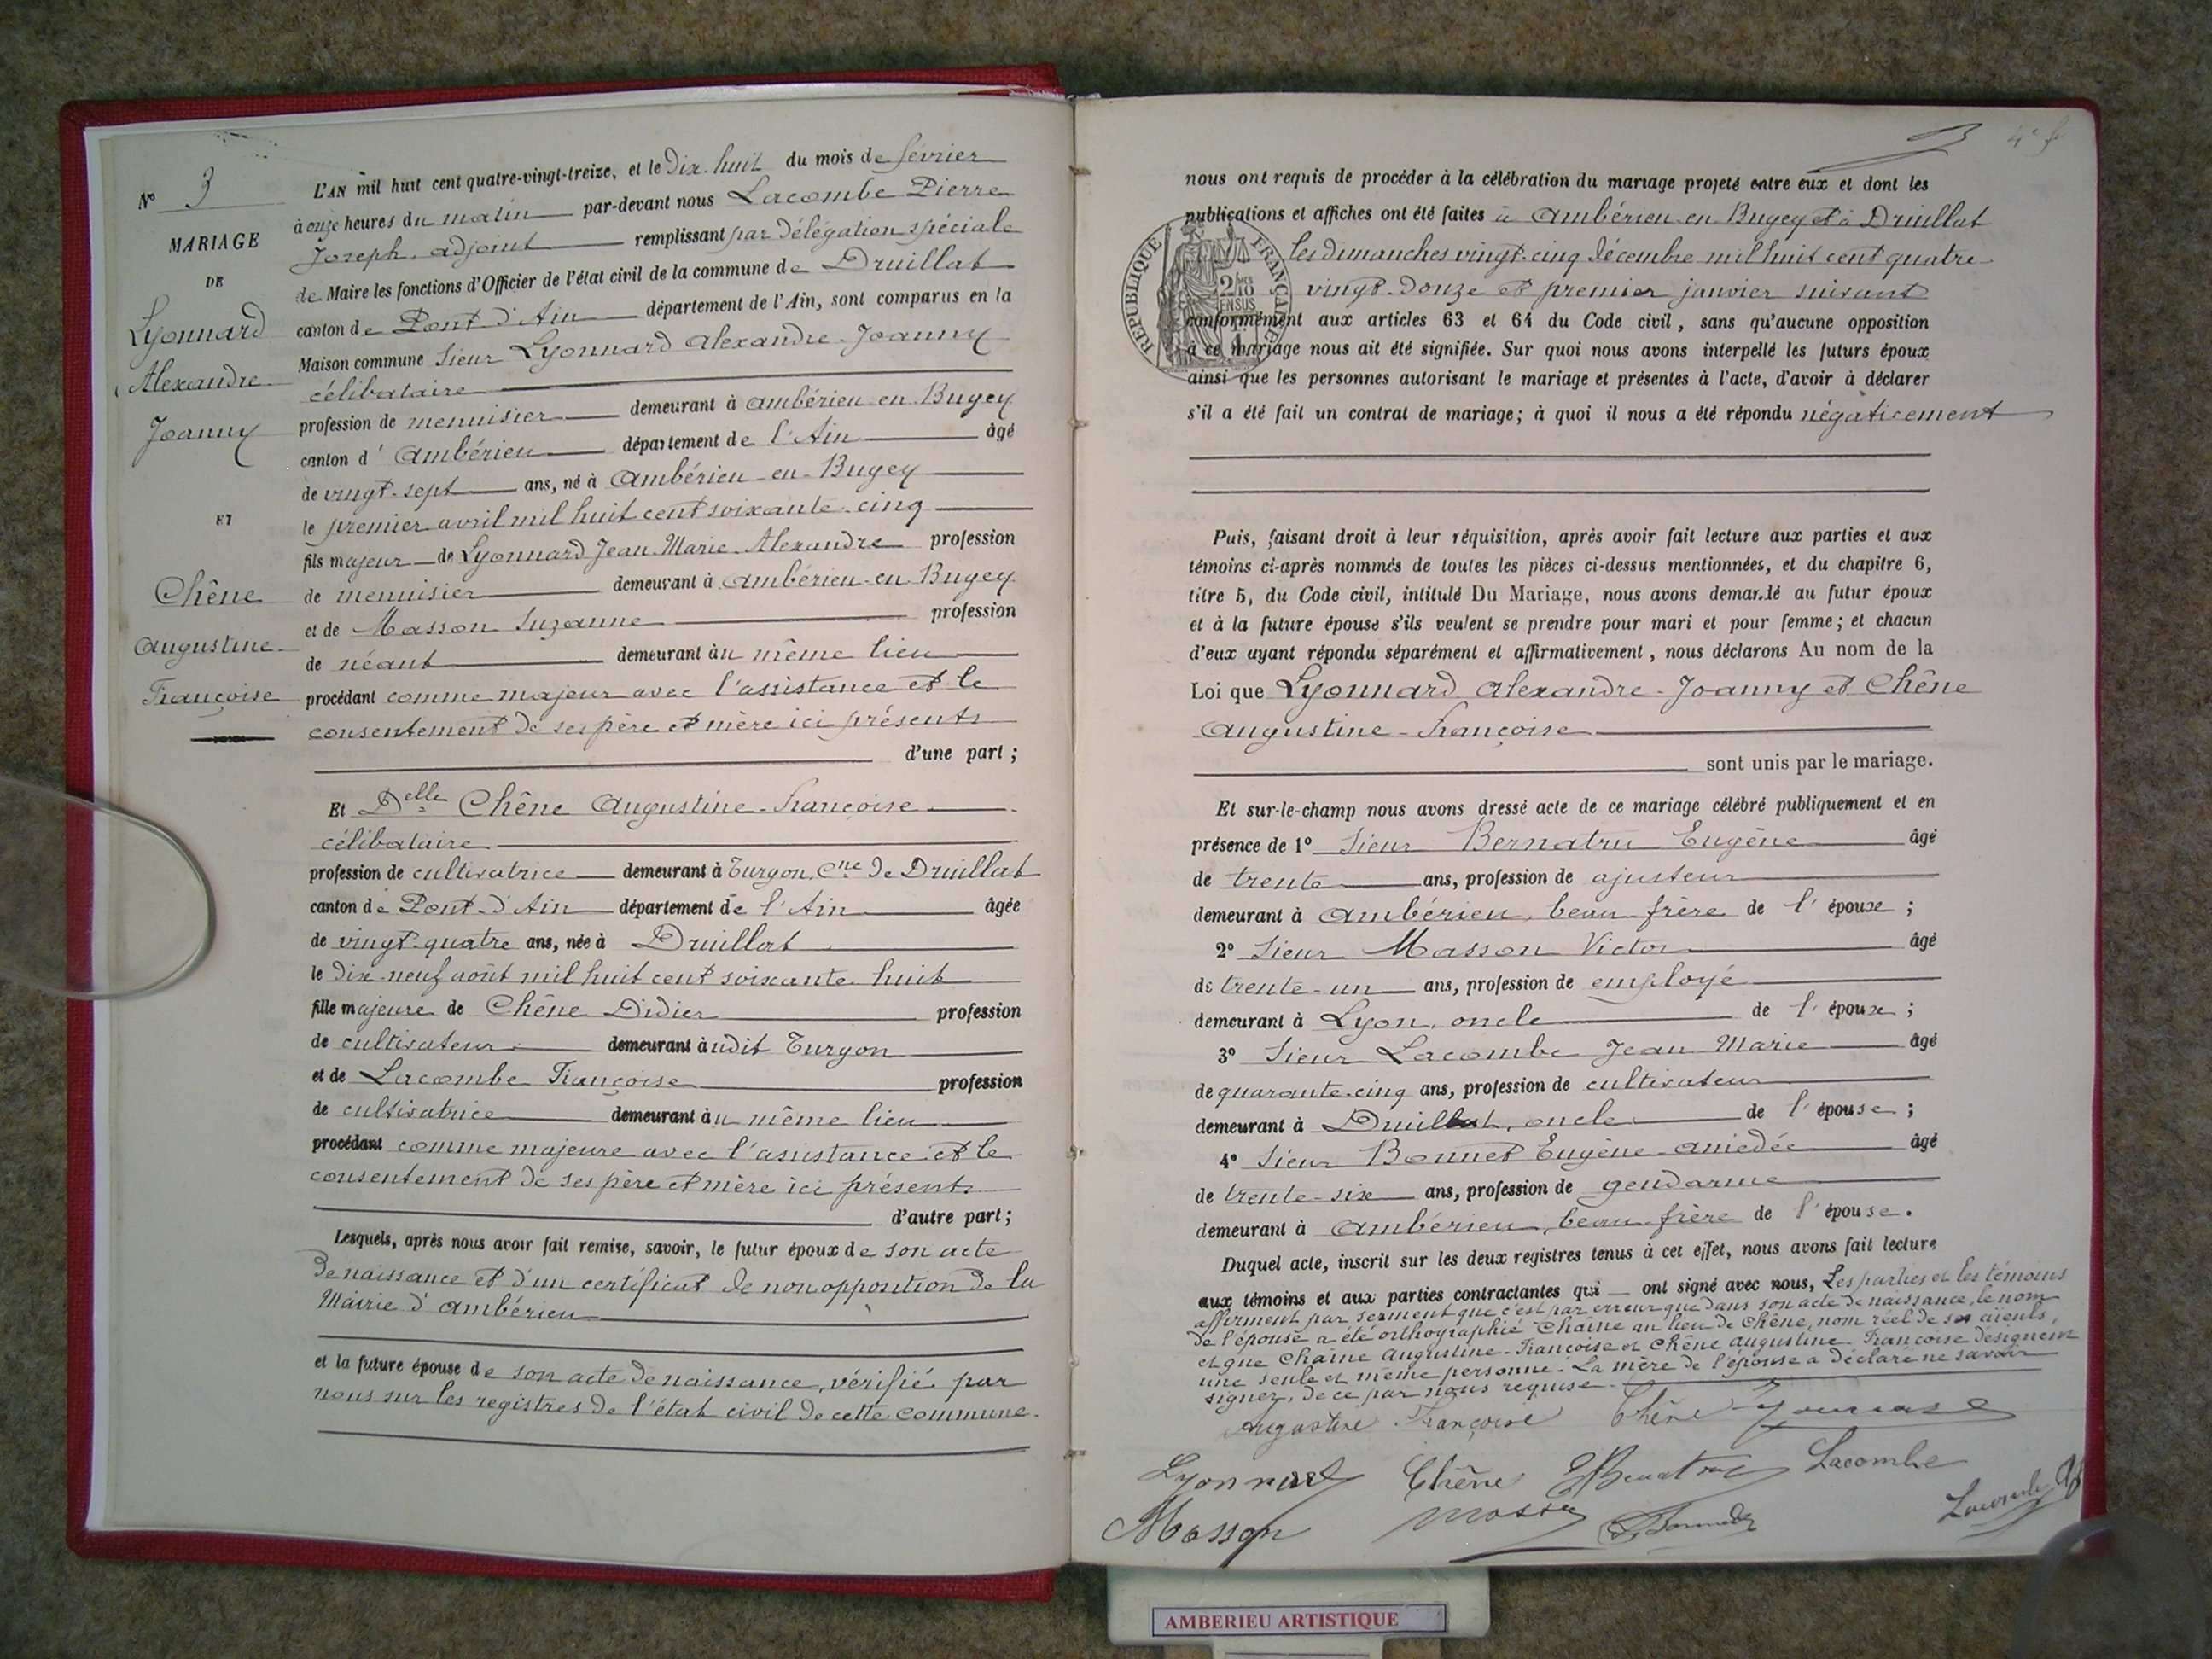 N° 3
MARIAGE
DE
Lyonnard
Alexandre
Joanny
ET
Chêne
Augustine
Françoise
L'AN mil huit cent quatre-vingt-treize, et le Dix huit du mois de février
à onze heures du matin par-devant nous Lacombe Pierre
Joseph, adjoint remplissant par délégation spéciale
de Maire les fonctions d'Officier de l'état civil de la commune de Druillat
canton de Pont d'Ain département de l'Ain, sont comparus en la
Maison commune Sieur Lyonnard Alexandre Joanny
célibataire
profession de menuisier demeurant à Ambérieu en Bugey
canton d'Ambérieu département de l'Ain âgé
de vingt-sept ans, né à Ambérieu-en-Bugey
le premier avril mil huit cent soixante-cinq
fils majeur de Lyonnard Jean-Marie-Alexandre profession
de menuisier demeurant à Ambérieu-en-Bugey
et de Masson Suzanne profession
de néant demeurant au même lieu
procédant comme majeur avec l'assistance et le
consentement de ses père et mère ici présents
d'une part;
Et Delle Chêne Augustine-Françoise
célibataire
profession de cultivatrice demeurant à Turgon, Cne de Druillat
canton de Pont-d'Ain département de l'Ain âgée
de vingt-quatre ans, née à Druillat
le dix-neuf août mil huit cent soixante huit
fille majeure de Chêne Didier profession
de cultivateur demeurant audit Turgon
et de Lacombe Françoise profession
de cultivatrice demeurant au même lieu
procédant comme majeure avec l'assistance et le
consentement de ses père et mère ici présents
d'autre part;
Lesquels, après nous avoir fait remise, savoir, le futur époux de son acte
de naissance et d'un certificat de non opposition de la
Mairie d'Ambérieu
et la future épouse de son acte de naissance, vérifié par
nous sur les registres de l'état civil de cette commune.
nous ont requis de procéder à la célébration du mariage projeté entre eux et dont les
publications et affiches ont été faites à Ambérieu-en-Bugey et à Druillat
les dimanches vingt-cinq décembre mil huit cent quatre
vingt-douze et premier janvier suivant
conformément aux articles 63 et 64 du Code civil, sans qu'aucune opposition
à ce mariage nous ait été signifiée. Sur quoi nous avons interpellé les futurs époux
ainsi que les personnes autorisant le mariage et présentes à l'acte, d'avoir à déclarer
s'il a été fait un contrat de mariage; à quoi il nous a été répondu négativement
RÉPUBLIQUE FRANÇAISE
Puis, faisant droit à leur réquisition, après avoir fait lecture aux parties et aux
témoins ci-après nommés de toutes les pièces ci-dessus mentionnées, et du chapitre 6,
titre 5, du Code civil, intitulé Du Mariage, nous avons demandé au futur époux
et à la future épouse s'ils veulent se prendre pour mari et pour femme; et chacun
d'eux ayant répondu séparément et affirmativement, nous déclarons Au nom de la
Loi que Lyonnard Alexandre-Joanny et Chêne
Augustine-Françoise
sont unis par le mariage.
Et sur-le-champ nous avons dressé acte de ce mariage célébré publiquement et en
présence de 1° Sieur Bernatru Eugène âgé
de trente ans, profession de ajusteur
demeurant à Ambérieu, beau-frère de l'époux;
2° Sieur Masson Victor âgé
de trente-un ans, profession de employé
demeurant à Lyon, oncle de l'époux;
3° Sieur Lacombe Jean Marie âgé
de quarante-cinq ans, profession de cultivateur
demeurant à Druillat, oncle de l'épouse;
4° Sieur Bonnet Eugène-Amédée âgé
de trente-six ans, profession de gendarme
demeurant à Ambérieu, beau-frère de l'épouse.
Duquel acte, inscrit sur les deux registres tenus à cet effet, nous avons fait lecture
aux témoins et aux parties contractantes qui ont signé avec nous, Les parties et les témoins
affirment par serment que c'est par erreur que dans son acte de naissance, le nom
de l'épouse a été orthographié Chaîne au lieu de Chêne, nom réel de ses aïeuls,
et que Chaîne Augustine-Françoise et Chêne Augustine-Françoise désignent
une seule et même personne. La mère de l'épouse a déclaré ne savoir
signer, de ce par nous requise.
Augustine Françoise Chêne
Lyonnard Chêne Lacombe
Masson Masson
AMBERIEU ARTISTIQUE